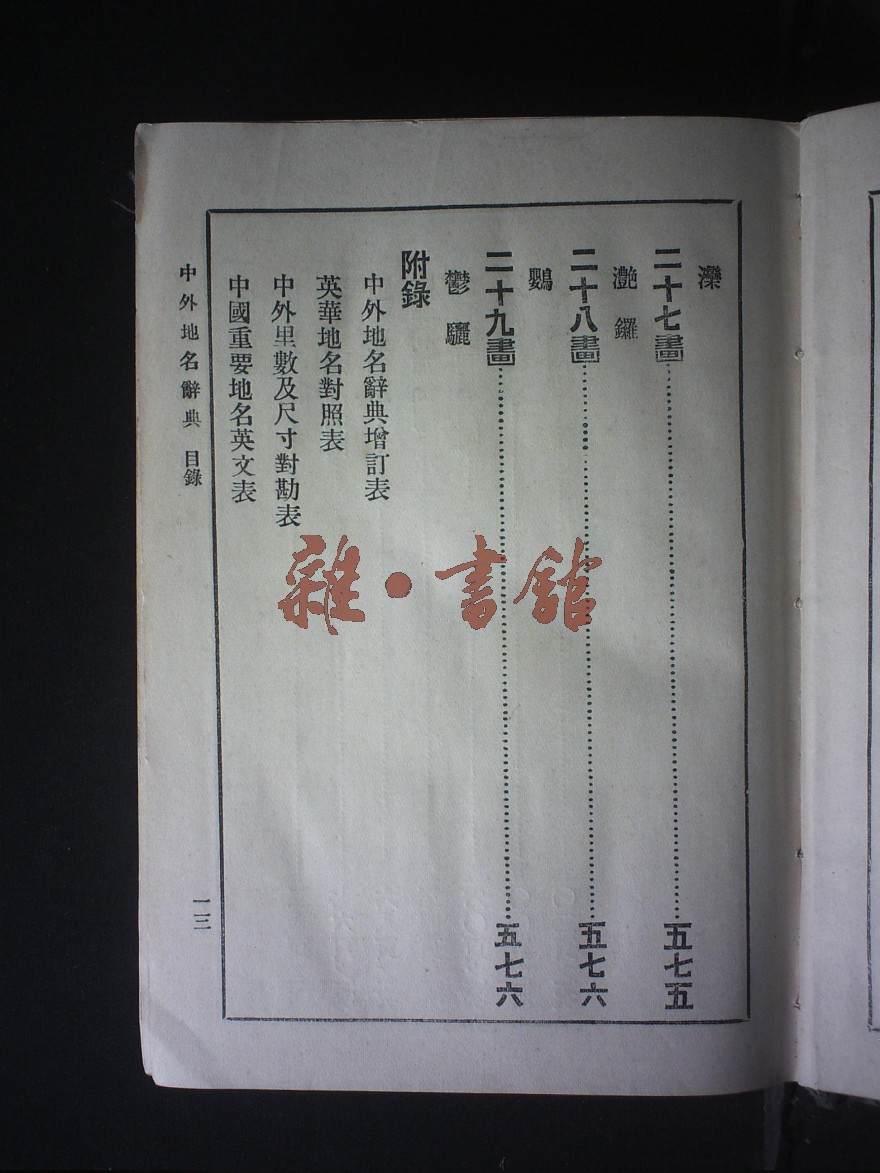 灤
二十七畫……五七五
灧 鑼
二十八畫……五七六
鸚
二十九畫……五七六
鬱 驪
附錄
中外地名辭典增訂表
英華地名對照表
中外里數及尺寸對勘表
中國重要地名英文表
中外地名辭典 目錄
一三
雜·書館